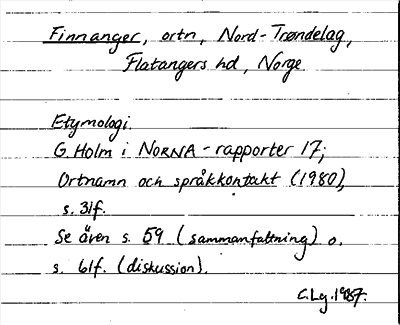 Finnanger, ortn, Nord-Trøndelag,
Flatangers hd, Norge
Etymologi.
G. Holm i NORNA-rapporter 17;
Ortnamn och språkkontakt (1980),
s. 31f.
Se även s. 59 (sammanfattning) o.
s. 61f. (diskussion).
C.Lg. 1987.